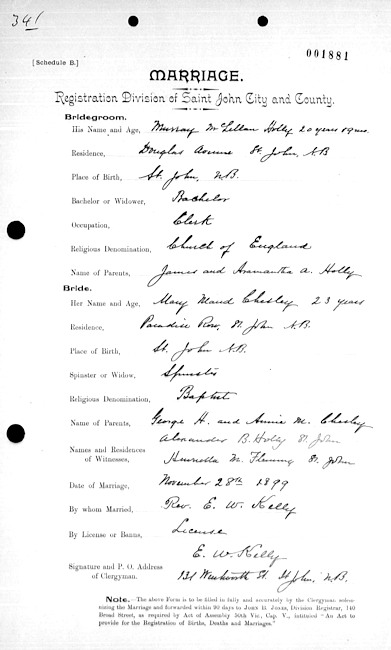 341
001881
[Schedule B.]
MARRIAGE.
Registration Division of Saint John City and County.
Bridegroom.
His Name and Age, Murray McLellan Holly 20 years 9 mos
Residence, Douglas Avenue St. John, N.B
Place of Birth, St. John, N.B.
Bachelor or Widower, Bachelor
Occupation, Clerk
Religious Denomination, Church of England
Name of Parents, James and Aramantha A. Holly
Bride.
Her Name and Age, Mary Maud Chesley 23 years
Residence, Paradise Row, St. John N.B.
Place of Birth, St. John N.B.
Spinster or Widow, Spinster
Religious Denomination, Baptist
Name of Parents, George H. and Annie M. Chesley
Names and Residences of Witnesses, Alexander B. Holly St. John
Henrietta M. Fleming St. John
Date of Marriage, November 28th 1899
By whom Married, Rev. E. W. Kelly
By License or Banns, License
Signature and P. O. Address of Clergyman. E. W. Kelly
131 Wentworth St. St John, N.B.
Note.—The above Form is to be filled in fully and accurately by the Clergyman solemnizing the Marriage and forwarded within 90 days to John B. Jones, Division Registrar, 140
Broad Street, as required by Act of Assembly 50th Vic., Cap. V., intituled "An Act to
provide for the Registration of Births, Deaths and Marriages."